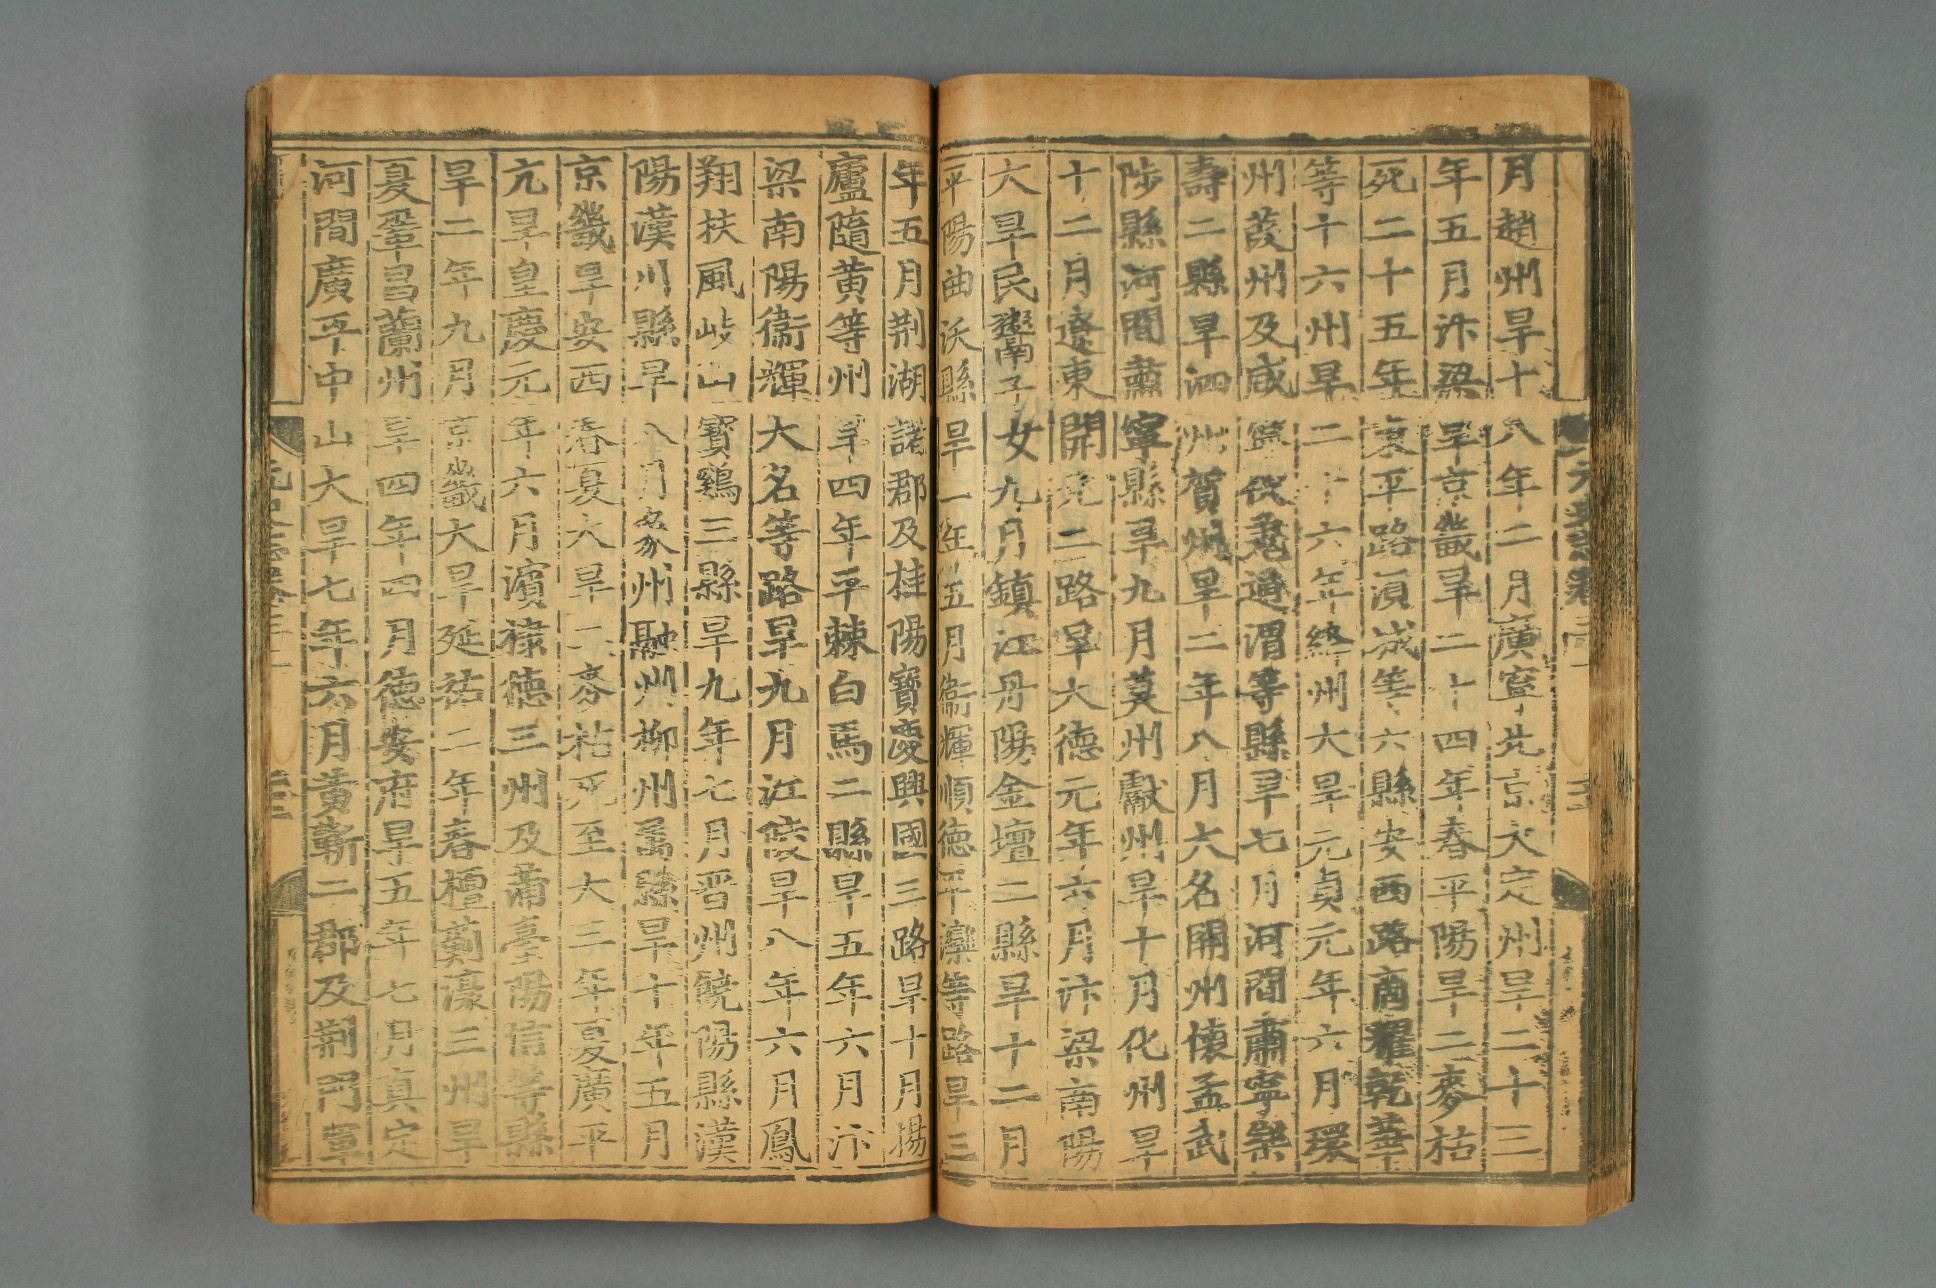 月趙州旱十八年二月廣寧北京大定州旱二十三
年五月汴梁旱京畿旱二十四年春平陽旱二麥枯
死二十五年東平路須城等六縣安西路商耀乾華
等十六州旱二十六年絳州大旱元貞元年六月環
州葭州及咸寧伏羌通渭等縣旱七月河間肅寧樂
壽二縣旱泗州賀州旱二年八月大名開州懷孟武
陟縣河間肅寧縣旱九月莫州獻州旱十月化州旱
十二月遼東開元二路旱大德元年六月汴梁南陽
大旱民鬻男子女九月鎮江丹陽金壇二縣旱十二月
平陽曲沃縣旱二年五月衞輝順德平灤等路旱三
年五月荆湖諸郡及桂陽寶慶興國三路旱十月揚
廬隨黄等州旱四年平棘白馬二縣旱五年六月汴
梁南陽衞輝大名等路旱九月江陵旱八年六月鳳
翔扶風岐山寶雞三縣旱九年七月晋州饒陽縣漢
陽漢川縣旱八月象州融州柳州屬縣旱十年五月
京畿旱安西春夏大旱二麥枯死至大三年夏廣平
亢旱皇慶元年六月濱棣德三州及蒲臺陽信等縣
旱二年九月京畿大旱延祐二年春檀薊濠三州旱
夏鞏昌蘭州旱四年四月德安府旱五年七月真定
河間廣平中山大旱七年六月黄蘄二郡及荆門軍